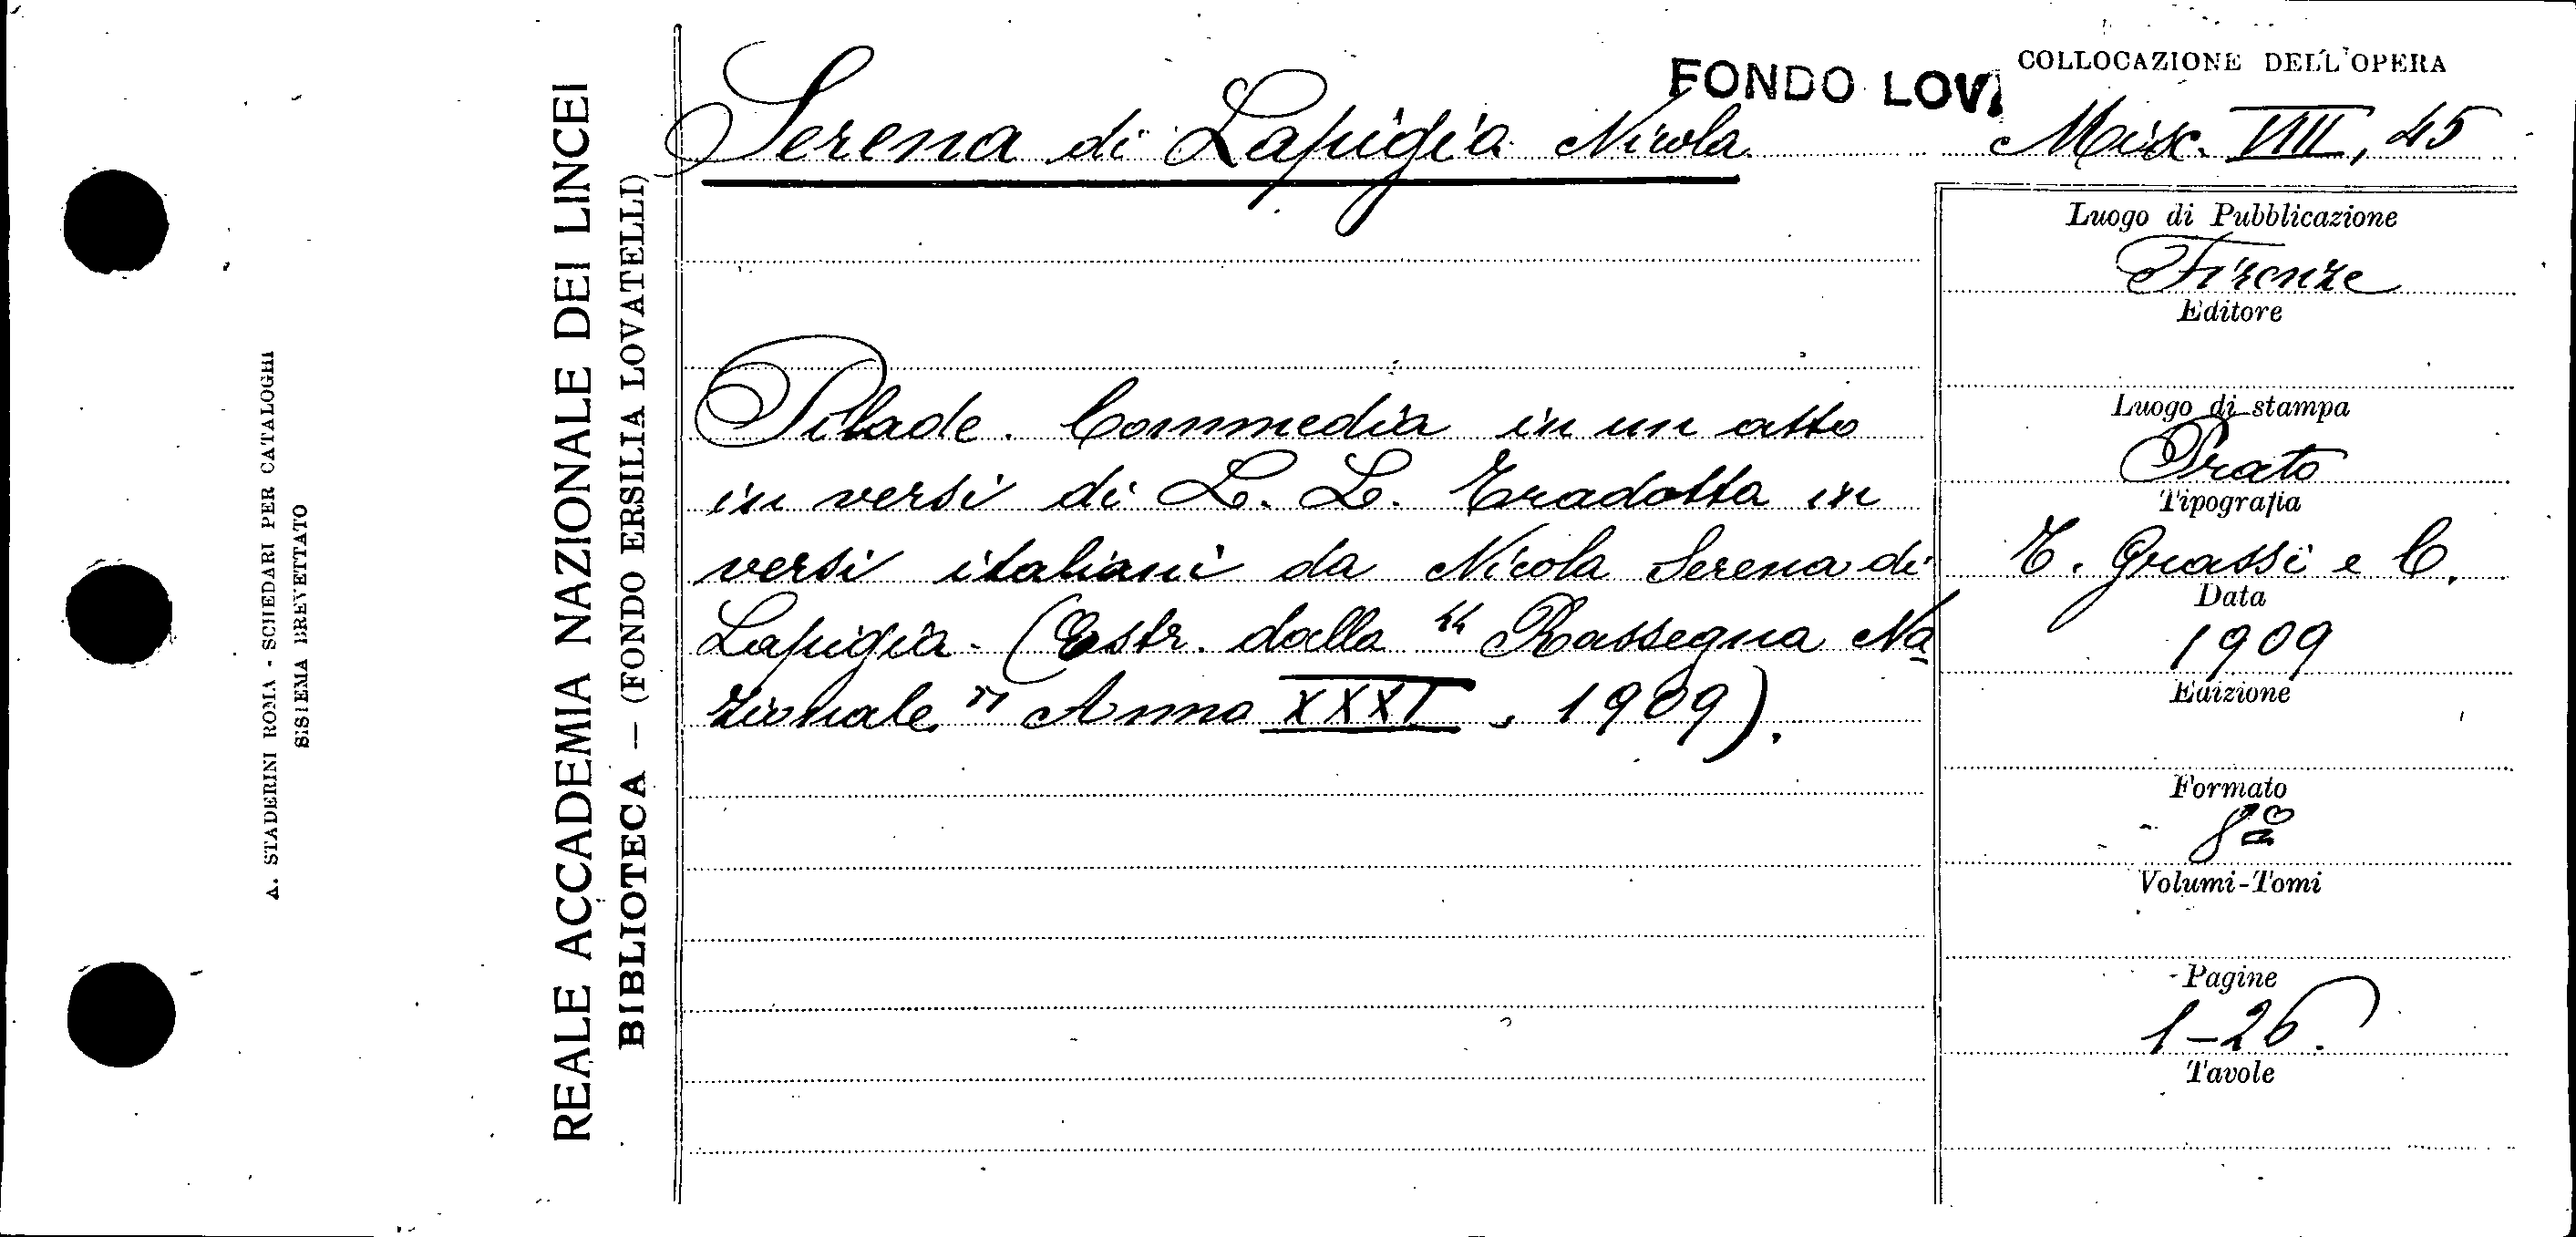 FONDO LOV
COLLOCAZIONE DELL'OPERA
Serena di Lapigia Nicola
Misc. VIII, 45
Pilade. Commedia in un atto
in versi di L. L. Tradotta in
versi italiani da Nicola Serena di
Lapigia. (Estr. dalla "Rassegna Na
zionale" Anno XXXI, 1909).
Luogo di Pubblicazione
Firenze
Editore
Luogo di stampa
Prato
Tipografia
T. Grassi e C.
Data
1909
Edizione
Formato
8º
Volumi-Tomi
Pagine
1-26.
Tavole
REALE ACCADEMIA NAZIONALE DEI LINCEI
BIBLIOTECA — (FONDO ERSILIA LOVATELLI)
A. STADERINI ROMA - SCHEDARI PER CATALOGHI
SISTEMA BREVETTATO